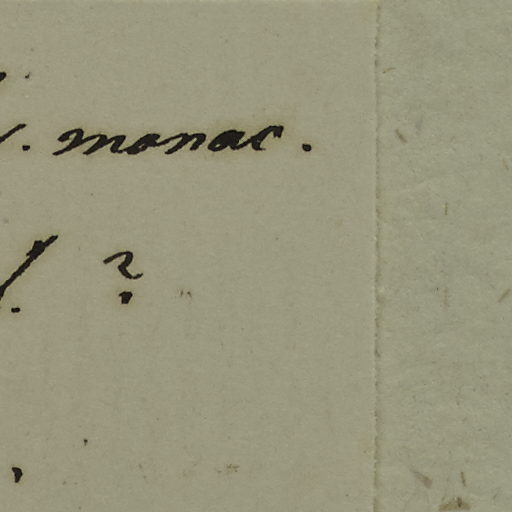 . monac.
. ?